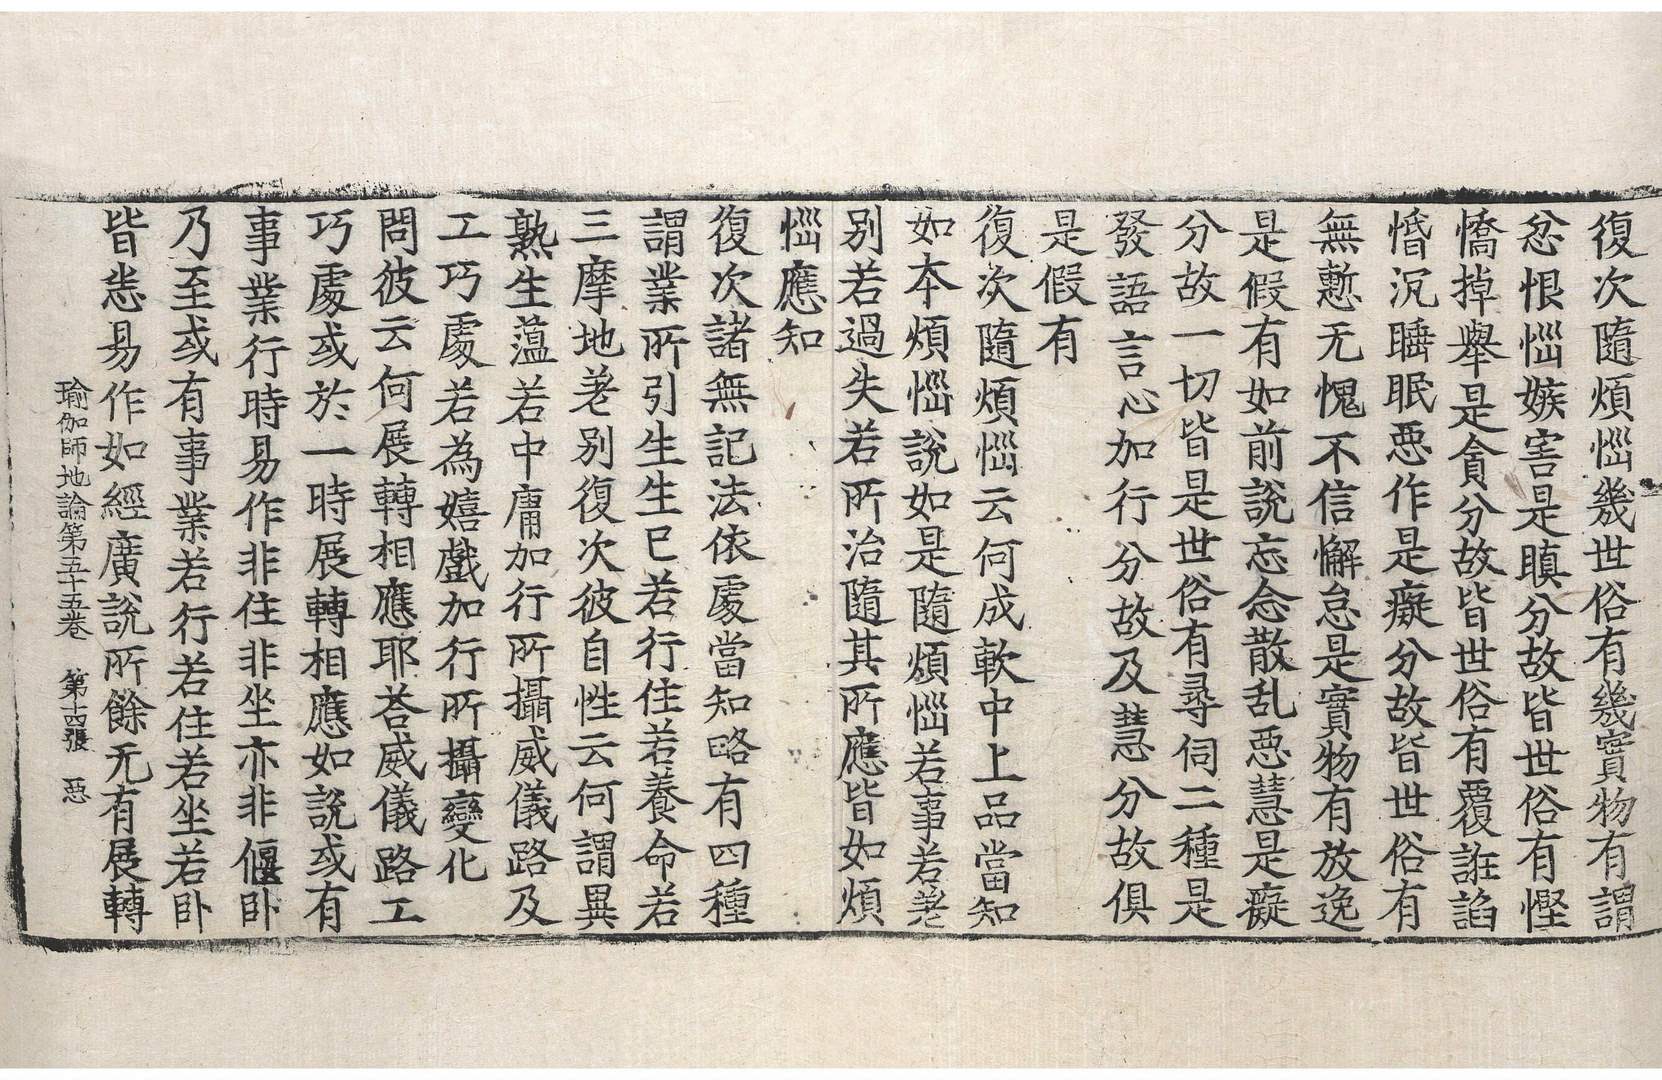 復次隨煩惱幾世俗有幾實物有謂
忿恨惱嫉害是瞋分故皆世俗有慳
憍掉舉是貪分故皆世俗有覆誑諂
惛沉睡眠惡作是癡分故皆世俗有
無慙无愧不信懈怠是實物有放逸
是假有如前說忘念散乱惡慧是癡
分故一切皆是世俗有尋伺二種是
發語言心加行分故及慧分故俱
是假有
復次隨煩惱云何成軟中上品當知
如本煩惱說如是隨煩惱若事若差
別若過失若所治隨其所應皆如煩
惱應知
復次諸無記法依處當知略有四種
謂業所引生生已若行住若養命若
三摩地差別復次彼自性云何謂異
熟生蕰若中庸加行所攝威儀路及
工巧處若為嬉戲加行所攝變化
問彼云何展轉相應耶荅威儀路工
巧處或於一時展轉相應如說或有
事業行時易作非住非坐亦非偃卧
乃至或有事業若行若住若坐若卧
皆悉易作如經廣說所餘无有展轉
瑜伽師地論第五十五卷 第十四張 惡